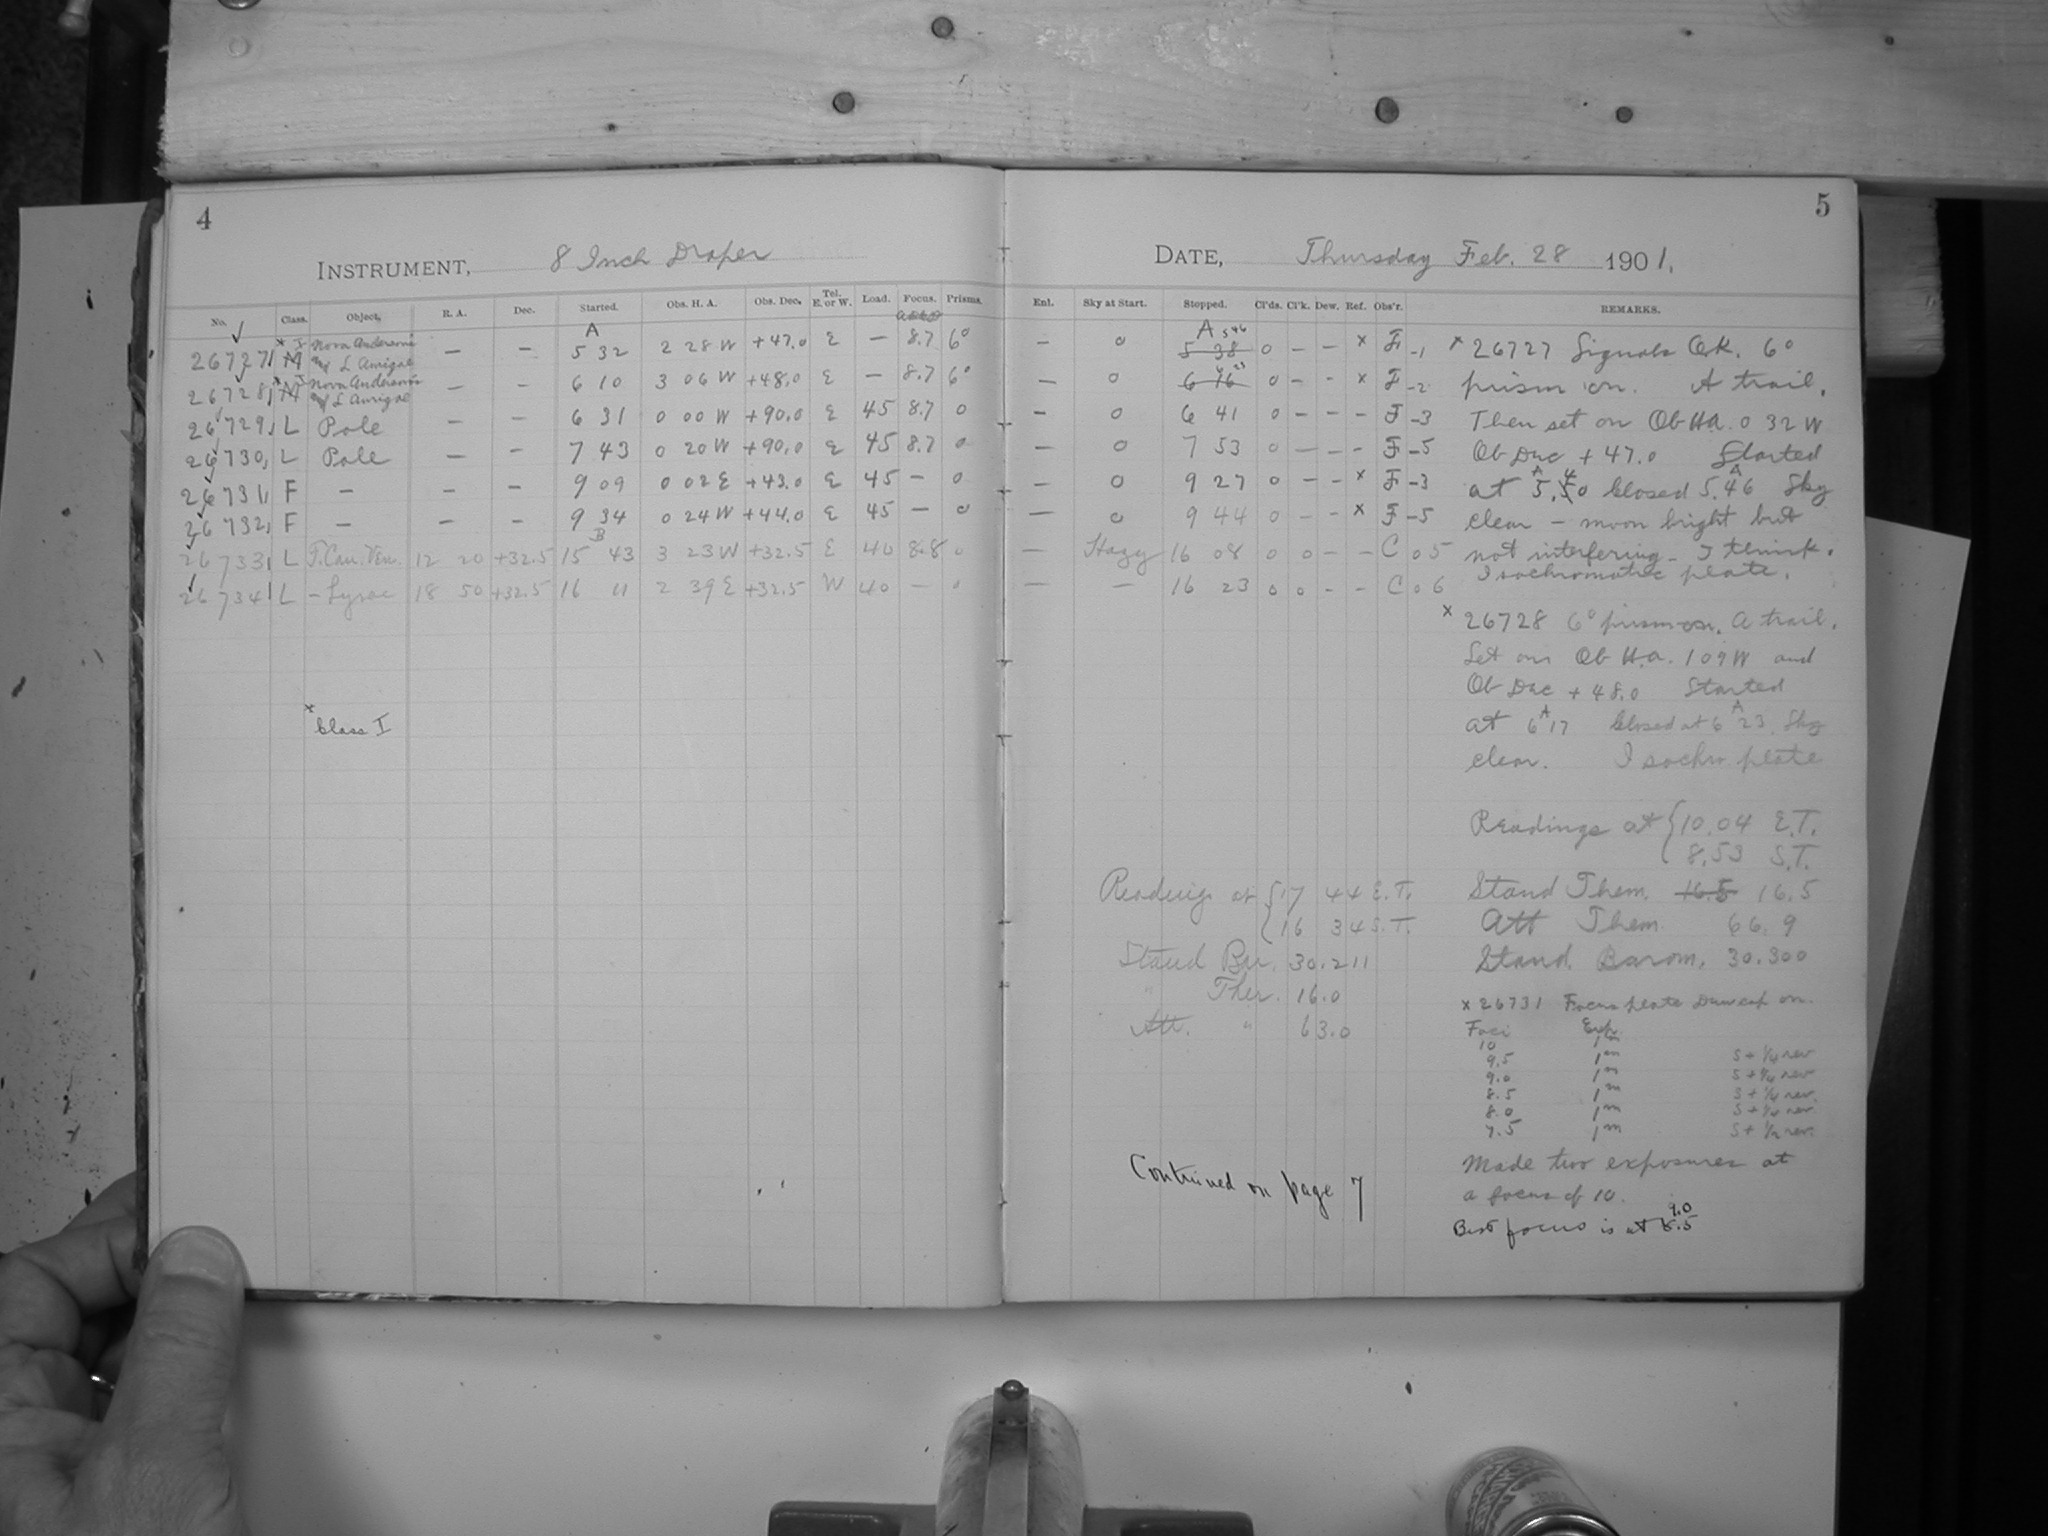 4
INSTRUMENT, 8 Inch Draper
No. Class. Object. R. A. Dec. Started. Obs. H. A. Obs. Dec. Tel. E. or W. Load. Focus. Prisms.
26727 M I Nova Andersonis L Aurigae — — A 5 32 2 28 W +47.0 E — 8.7 6°
26728 M I Nova Andersonis L Aurigae — — 6 10 3 06 W +48.0 E — 8.7 6°
26729 L Pole — — 6 31 0 00 W +90.0 E 45 8.7 0
26730 L Pole — — 7 43 0 20 W +90.0 E 45 8.7 0
26731 F — — — 9 09 0 02 E +43.0 E 45 — 0
26732 F — — — 9 34 0 24 W +44.0 E 45 — 0
26733 L T. Can. Ven. 12 20 +32.5 B 15 43 3 23 W +32.5 E 40 8.8 0
26734 L – Lyrae 18 50 +32.5 16 11 2 39 E +32.5 W 40 — 0
x Class I
5
DATE, Thursday Feb. 28 1901.
Ent. Sky at Start. Stopped. Cl'ds. Cl'k. Dew. Ref. Obs'r. REMARKS.
— 0 A 5 46 5 38 0 – – x F –1
— 0 6 23 6 16 0 – – x F –2
— 0 6 41 0 – – – F –3
— 0 7 53 0 – – – F –5
— 0 9 27 0 – – x F –3
— 0 9 44 0 – – x F –5
— Hazy 16 08 0 0 – – C 0 5
— — 16 23 0 0 – – C 0 6
x 26727 Signals O.K. 6°
prism on. A trail.
Then set on Ob HA. 0 32 W
Ob Dec +47.0 Started
at 5.40 Closed 5.46 Sky
clear – moon bright but
not interfering – I think.
Isochromatic plate.
x 26728 6° prism on. A trail.
Set on Ob H.A. 1 09 W and
Ob Dec +48.0 Started
at 6 A 17 Closed at 6 A 23. Sky
clear. Isochro plate
Readings at { 10.04 E.T.
8.53 S.T.
Stand Them. 16.5 16.5
Att Them. 66.9
Stand. Barom. 30.300
Readings at { 17 44 E.T.
16 34 S.T.
Stand Bar. 30.211
" Ther. 16.0
Att. " 63.0
x 26731 Focus plate Dew cap on.
Foci Exp.
10 1m
9.5 1m S + 1/4 rev
9.0 1m S + 1/4 rev
8.5 1m S + 1/4 rev.
8.0 1m S + 1/4 rev
7.5 1m S + 1/2 rev.
Made two exposures at
a focus of 10.
Best focus is at 8.5 9.0
Continued on page 7